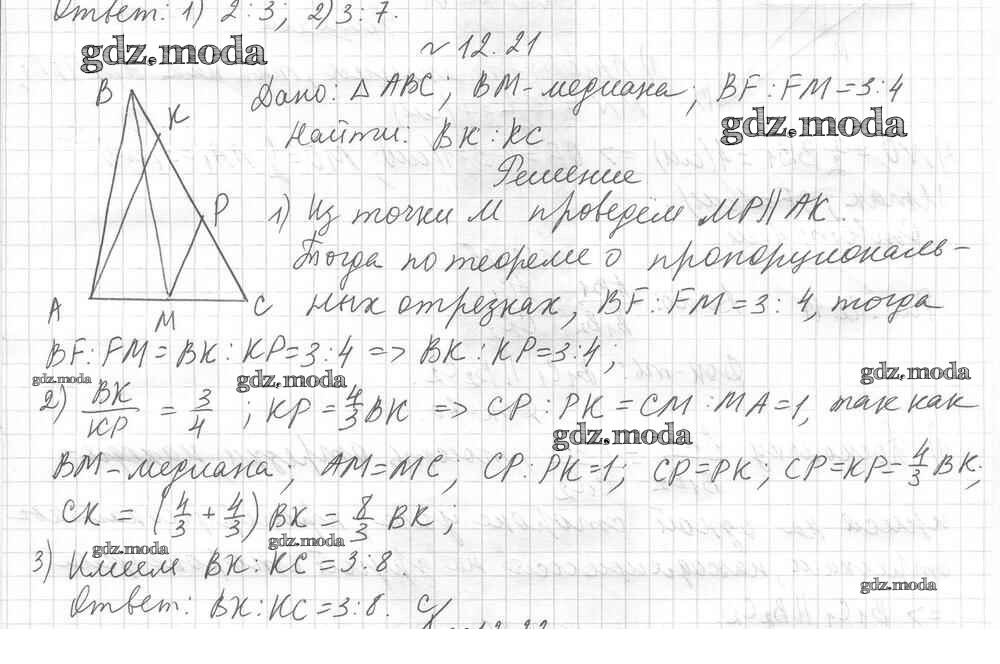 Ответ: 1) 2:3; 2) 3:7.
gdz.moda
№ 12.21
B
K
P
A
M
C
Дано: △ ABC; BM-медиана; BF:FM=3:4
gdz.moda
Найти: BK:KC
Решение
1) Из точки M проведём MP||AK.
Тогда по теореме о пропорциональ-
ных отрезках, BF:FM=3:4, тогда
BF:FM=BK:KP=3:4=>BK:KP=3:4;
gdz.moda gdz.moda gdz.moda
2) BK/KP = 3/4; KP=4/3 BK => CP:PK=CM:MA=1, так как
gdz.moda
BM-медиана; AM=MC; CP:PK=1; CP=PK; CP=KP=4/3 BK;
CK = (4/3 + 4/3) BK = 8/3 BK;
gdz.moda gdz.moda
3) Имеем BK:KC=3:8.
gdz.moda
Ответ: BK:KC=3:8.